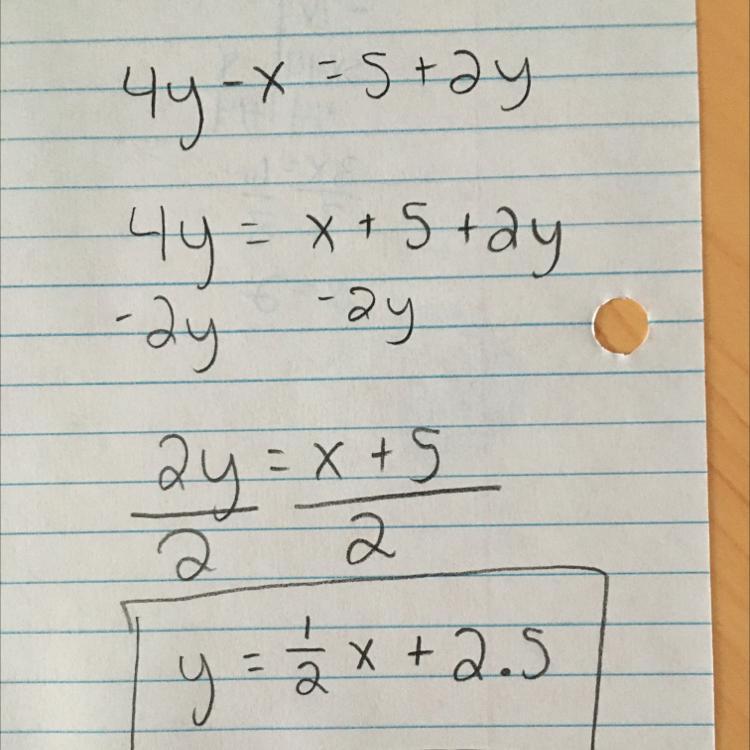 4y - x = 5 + 2y
4y = x + 5 + 2y
-2y -2y
2y = x + 5
2 2
y = 1/2 x + 2.5